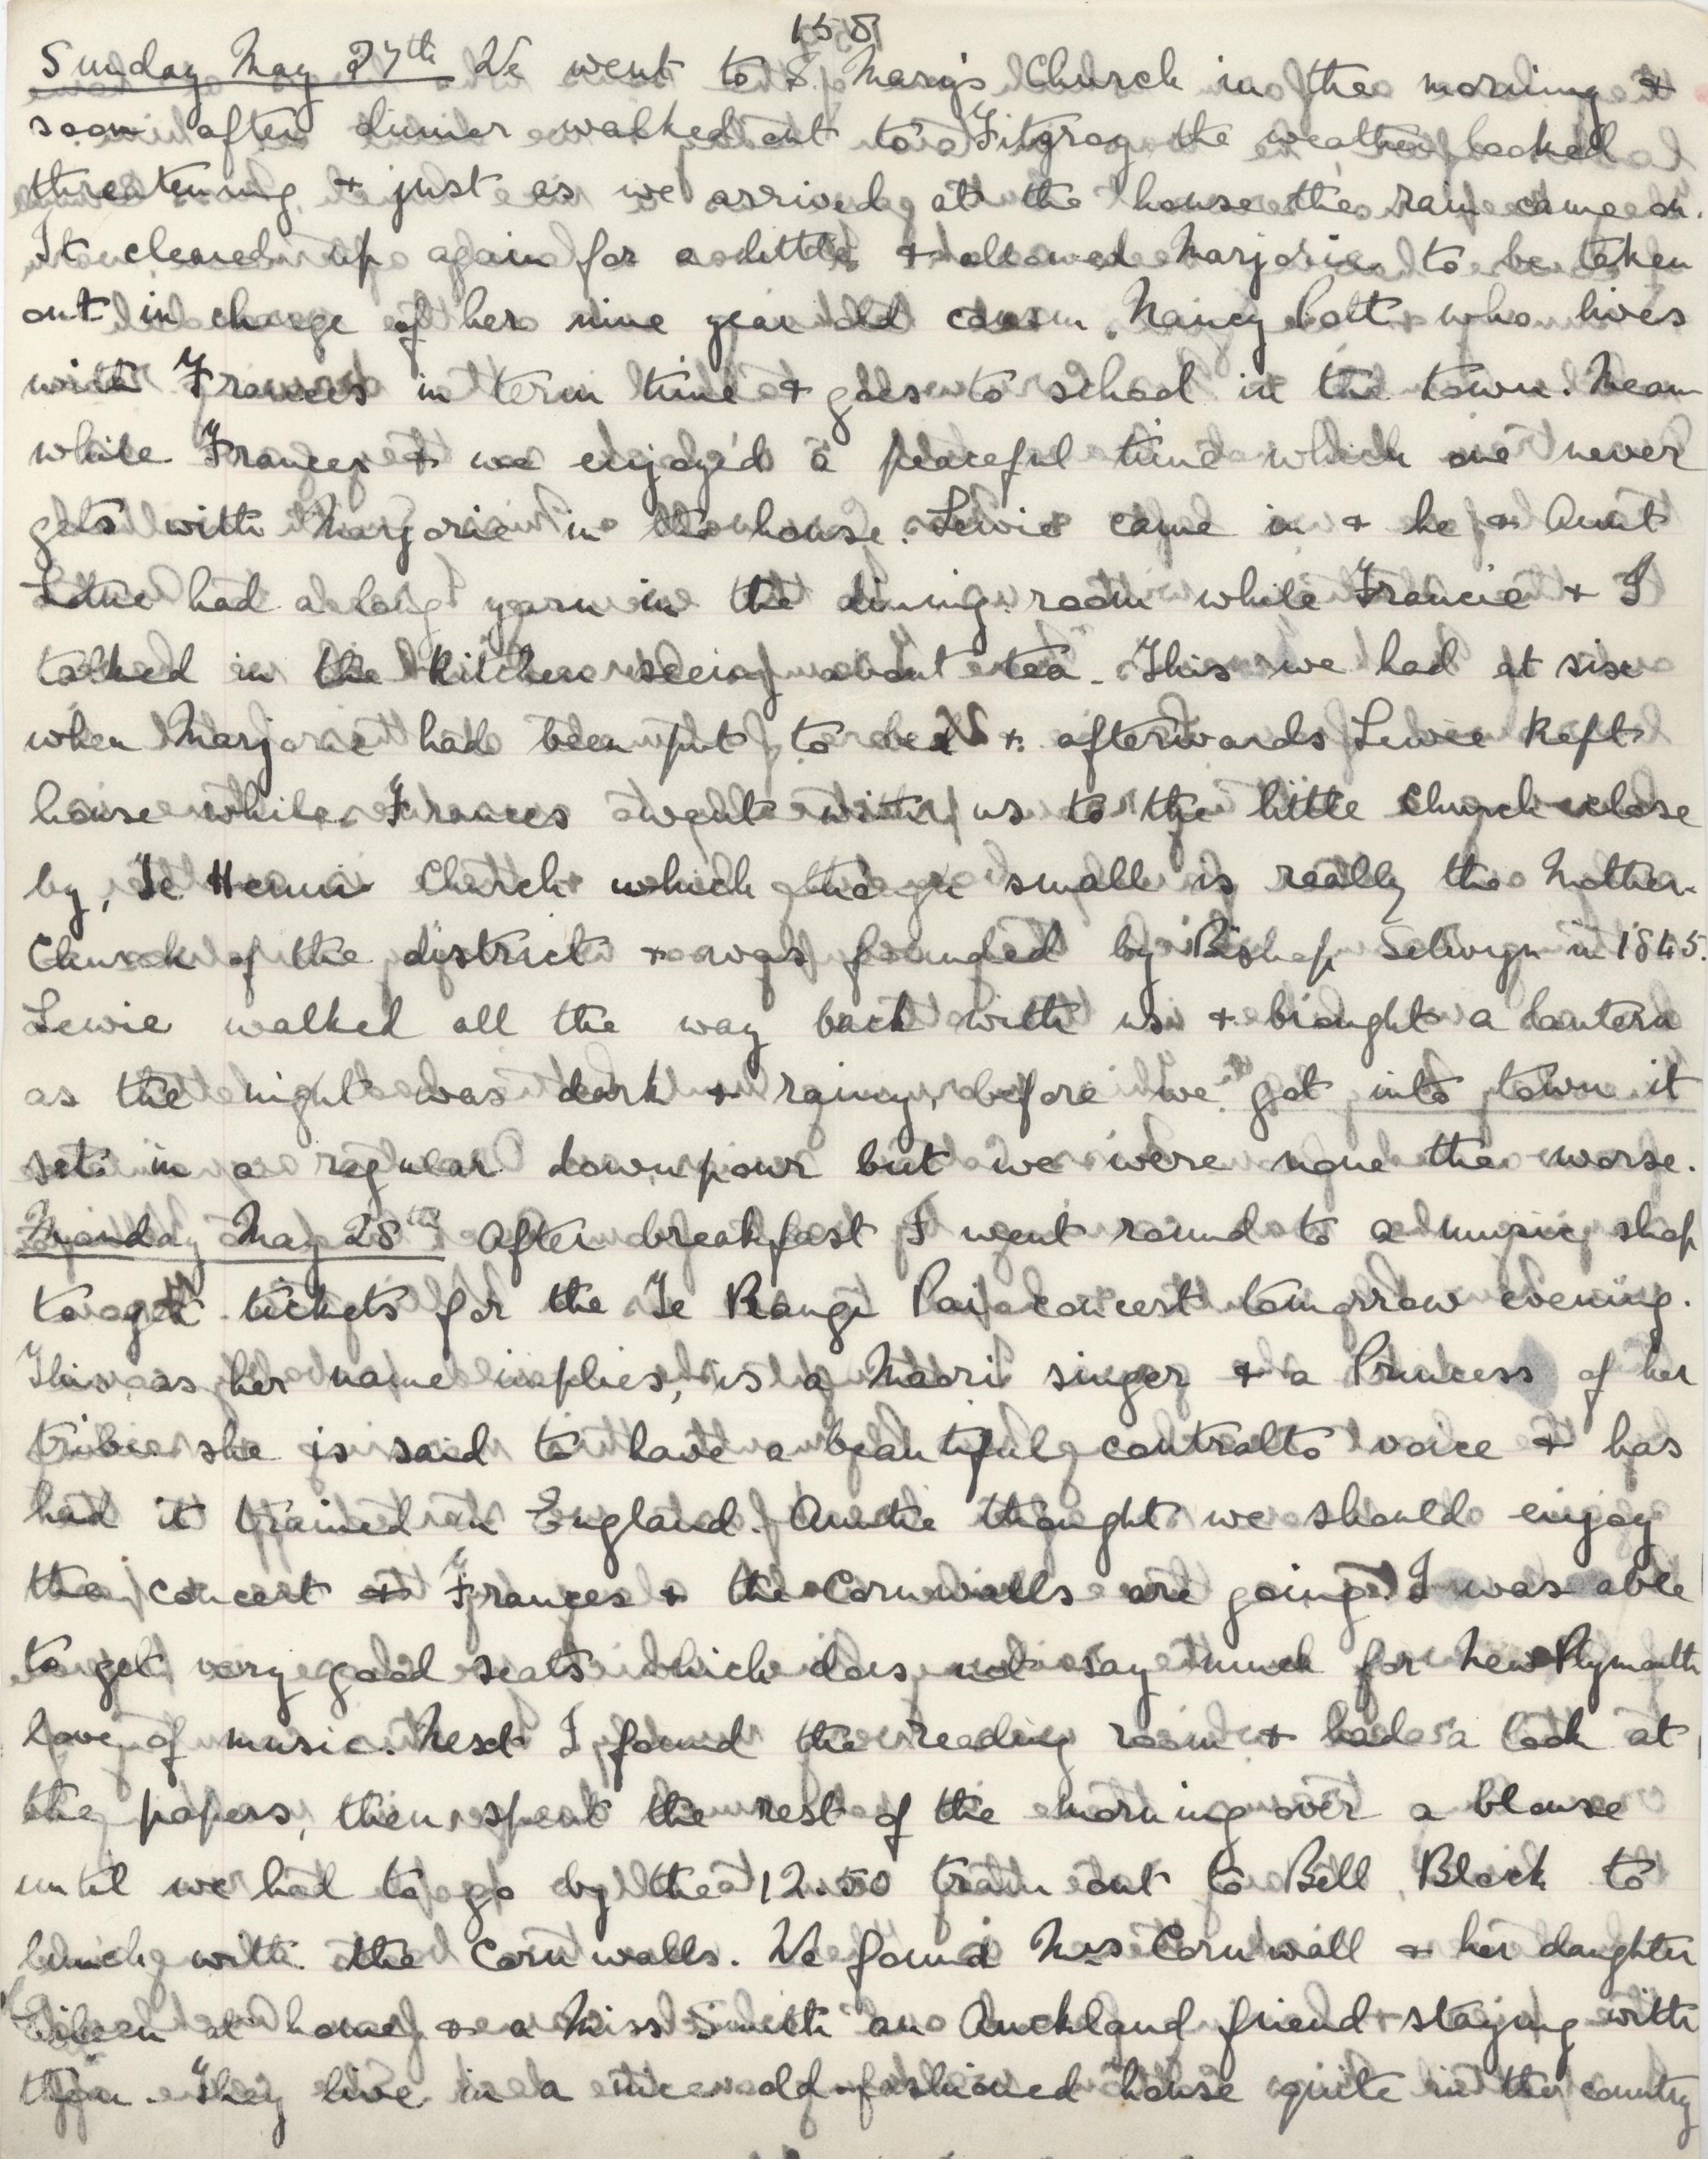 158
Sunday May 27th We went to S. Mary's Church in the morning &
soon after dinner walked out to Fitzroy the weather looked
threatening & just as we arrived at the house the rain came on.
It cleared up again for a little & allowed Marjorie to be taken
out in charge of her nine year old cousin Nancy Pott who lives
with Frances in term time & goes to school in the town. Mean
while Frances & we enjoyed a peaceful time which one never
gets with Marjorie in the house. Lewie came in & he & Aunt
Lottie had a long yarn in the dining-room while Francie & I
talked in the kitchen seeing about tea. This we had at six
when Marjorie had been put to bed & afterwards Lewie kept
house while Frances went with us to the little Church close
by, Te Henui Church which though small is really the Mother-
Church of the district & was founded by Bishop Selwyn in 1845.
Lewie walked all the way back with us & brought a lantern
as the night was dark & rainy, before we got into town it
set in a regular downpour but we were none the worse.
Monday May 28th After breakfast I went round to a music shop
to get tickets for the Te Rangi Pai concert tomorrow evening.
This, as her name implies, is a Maori singer & a Princess of her
tribe she is said to have a beautiful contralto voice & has
had it trained in England. Auntie thought we should enjoy
the concert & Frances & the Cornwalls are going. I was able
to get very good seats which does not say much for New Plymouth
love of music. Next I found the reading room & had a look at
the papers, then spent the rest of the morning over a blouse
until we had to go by the 12.50 train out to Bell Block to
lunch with the Cornwalls. We found Mrs Cornwall & her daughter
Eileen at home & a Miss Smith an Auckland friend staying with
them. They live in a nice old-fashioned house quite in the country